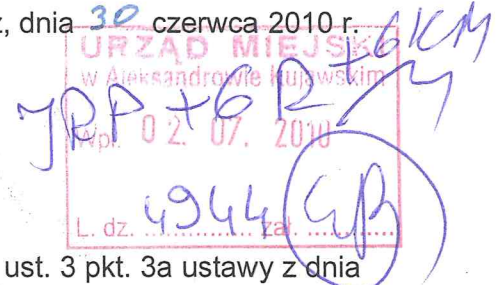 z, dnia 30 czerwca 2010 r.
URZĄD MIEJSKI
w Aleksandrowie Kujawskim
Wpł. 02. 07. 2010
L. dz. 4944 zał.
ust. 3 pkt. 3a ustawy z dnia